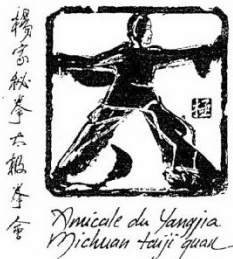 楊家秘傳太極拳會
極
Amicale du Yangjia
Michuan taiji quan